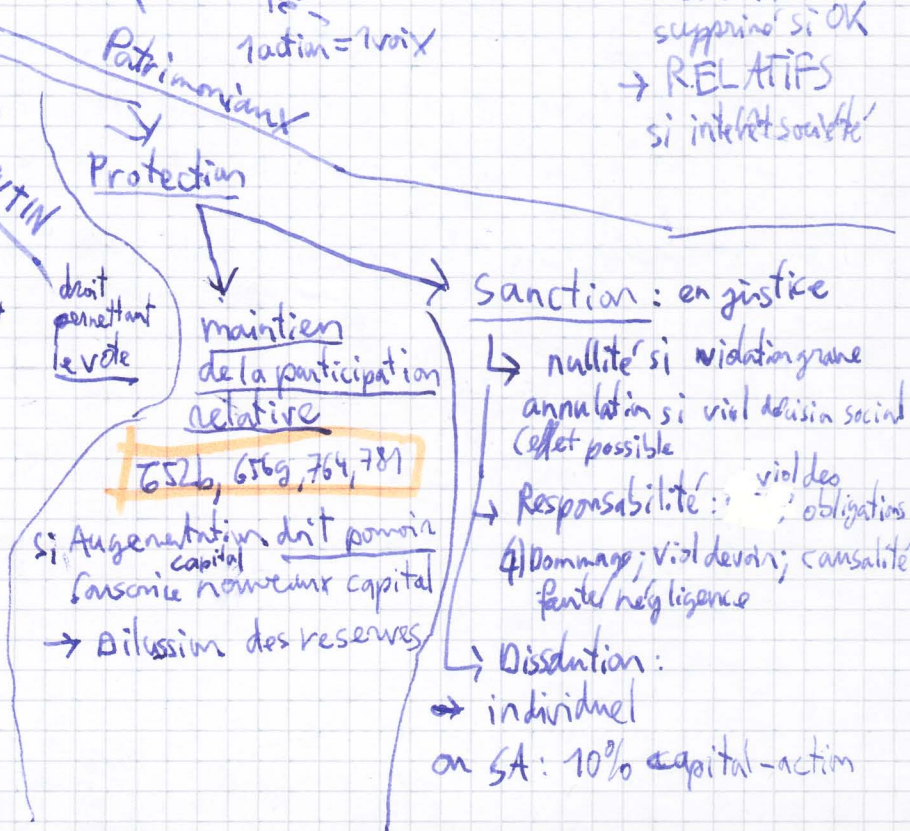 1 action = 1 voix
supprimé si OK
→ RELATIFS
si intérêt société
Patrimoniaux
Protection
droit
permettant
le vote
maintien
de la participation
relative
652b, 656g, 764, 781
si Augmentation doit pouvoir
capital
souscrire nouveaux capital
→ Dilussion des reserves
Sanction : en justice
nullité si violation grave
annulation si viol décision social
(effet possible
→ Responsabilité : viol des
obligations
4) Dommage ; viol devoir ; causalité
faute / négligence
→ Dissolution :
→ individuel
ou SA : 10% capital-action